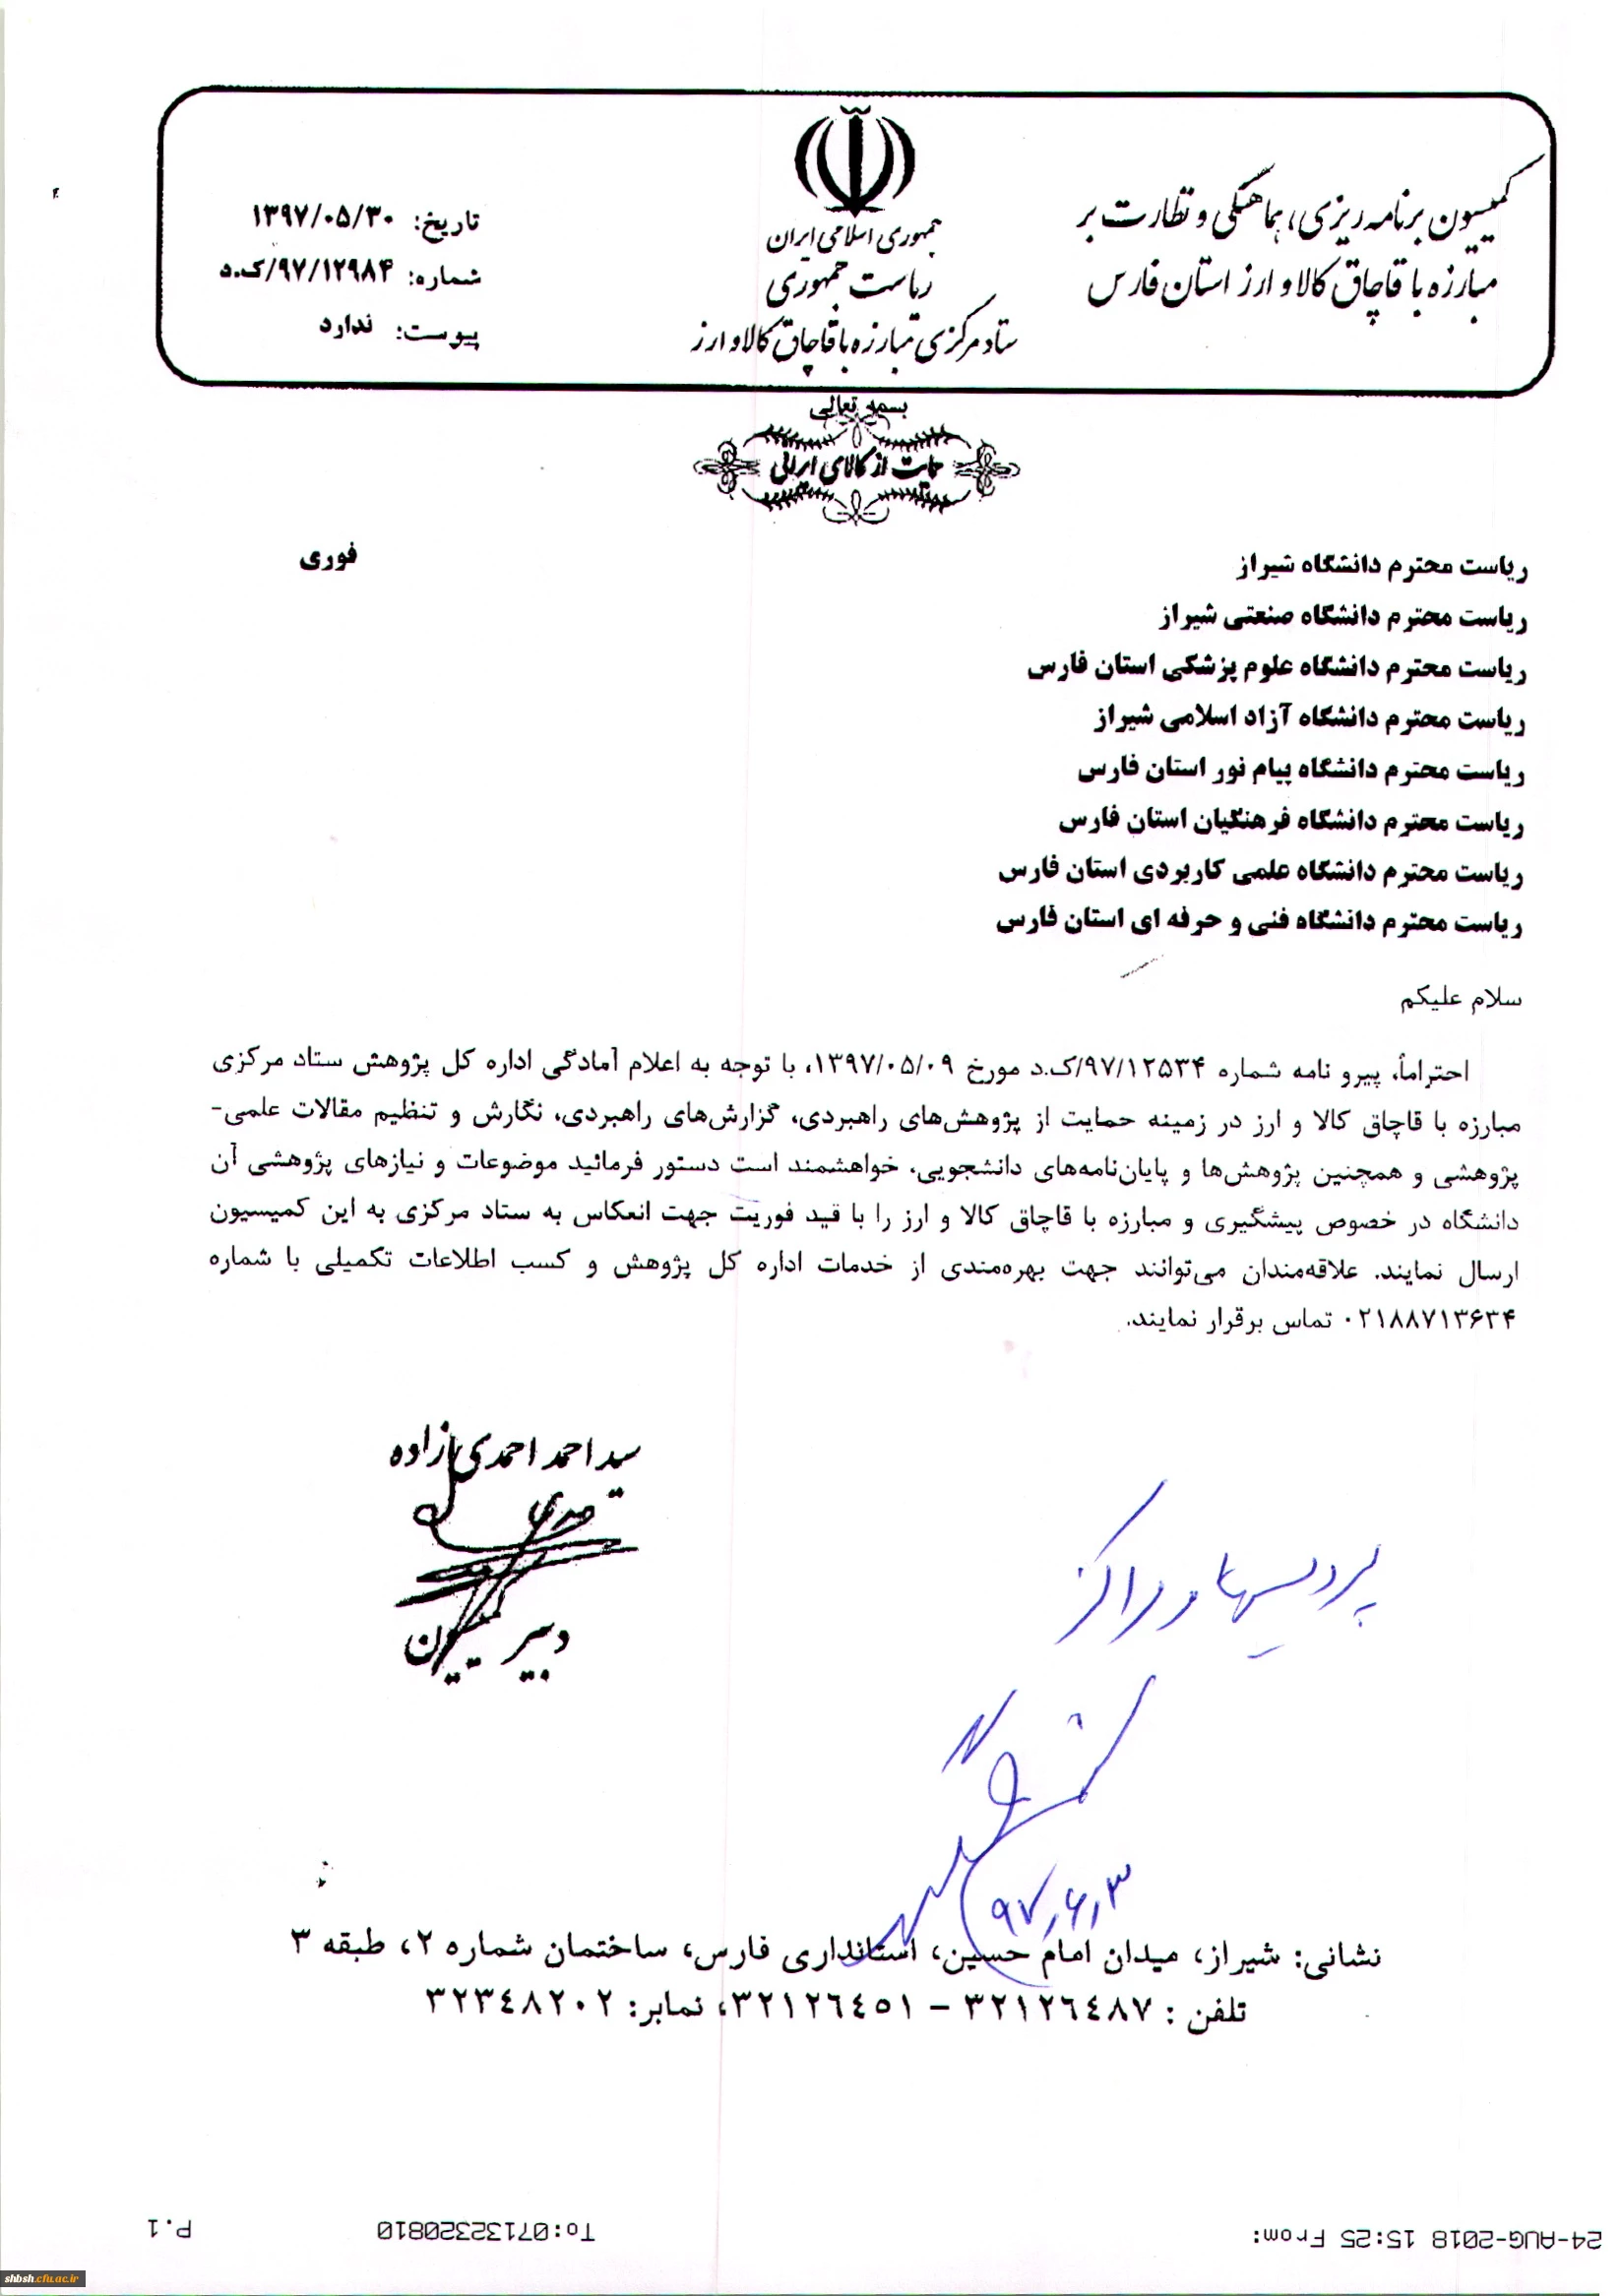 کمیسیون برنامه ریزی، هماهنگی و نظارت بر
مبارزه با قاچاق کالا و ارز استان فارس
جمهوری اسلامی ایران
ریاست جمهوری
ستاد مرکزی مبارزه با قاچاق کالا و ارز
تاریخ: ۱۳۹۷/۰۵/۳۰
شماره: ۹۷/۱۲۹۸۴/ک.د
پیوست: ندارد
بسمه تعالی
حمایت از کالای ایرانی
فوری
ریاست محترم دانشگاه شیراز
ریاست محترم دانشگاه صنعتی شیراز
ریاست محترم دانشگاه علوم پزشکی استان فارس
ریاست محترم دانشگاه آزاد اسلامی شیراز
ریاست محترم دانشگاه پیام نور استان فارس
ریاست محترم دانشگاه فرهنگیان استان فارس
ریاست محترم دانشگاه علمی کاربردی استان فارس
ریاست محترم دانشگاه فنی و حرفه ای استان فارس
سلام علیکم
احتراماً، پیرو نامه شماره ۹۷/۱۲۵۳۴/ک.د مورخ ۱۳۹۷/۰۵/۰۹، با توجه به اعلام آمادگی اداره کل پژوهش ستاد مرکزی
مبارزه با قاچاق کالا و ارز در زمینه حمایت از پژوهش‌های راهبردی، گزارش‌های راهبردی، نگارش و تنظیم مقالات علمی-
پژوهشی و همچنین پژوهش‌ها و پایان‌نامه‌های دانشجویی، خواهشمند است دستور فرمائید موضوعات و نیازهای پژوهشی آن
دانشگاه در خصوص پیشگیری و مبارزه با قاچاق کالا و ارز را با قید فوریت جهت انعکاس به ستاد مرکزی به این کمیسیون
ارسال نمایند. علاقه‌مندان می‌توانند جهت بهره‌مندی از خدمات اداره کل پژوهش و کسب اطلاعات تکمیلی با شماره
۰۲۱۸۸۷۱۳۶۳۴ تماس برقرار نمایند.
سید احمد احمدی زاده
دبیر کمیسیون
پردیسها و مراکز
۹۷,۶,۳
نشانی: شیراز، میدان امام حسین، استانداری فارس، ساختمان شماره ۲، طبقه ۳
تلفن : ۳۲۱۲۶۴۸۷ – ۳۲۱۲۶۴۵۱، نمابر: ۳۲۳۴۸۲۰۲
24-AUG-2018 15:25 From: To:07132320810 P.1
shbsh.cfu.ac.ir